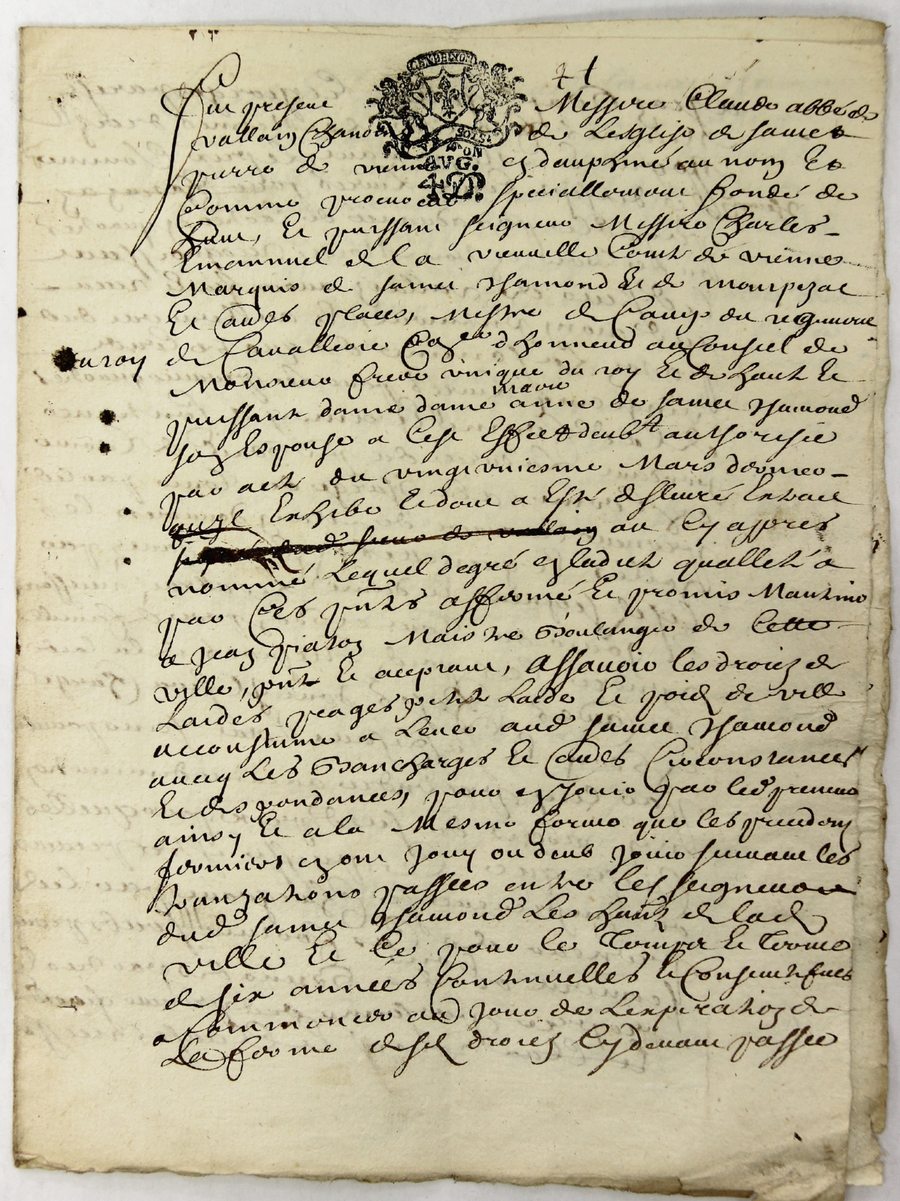 41
Fut present Messire Claude abbé de
vallain Chanoi de Lesglise de sainct
pierre de vienne en dauphiné au nom Et
Comme procureur speciallement fondé de
haut, Et puissant seigneur Messire Charles
Emanuel de la vieuville Comte de vienne
Marquis de sainct chamond Et de montpezat
Et autres places, Mestre de Camp du regiment
du roy
de Cavallerie d'honneur au Conseil de
Monsieur frere unique du roy Et de haute Et
puissante dame dame marie anne de sainct chamond
son Espouse a Cest Effect deubt authorisée
par acte du vingt uniesme Mars dernier
Exhibé Et dont a Esté deslivré Extrait
au cy appres
nommé Lequel de gré en ladite quallité a
par Ces pnts affermé Et promis Maintenir
a Jean piaton Maistre Boulanger de Cette
ville, pnt Et acceptant, assavoir les droicts de
Laides peages petit Laide Et poid de ville
accoustumé a Lever aud sainct chamond
avecq Les Pancharges Et autres Circonstances
Et despendances, pour en Jouir par led preneur
ainsy Et a la Mesme forme que les precedents
fermiers en ont Jouy ou deub Jouir suivant les
tranzations passées entre les seigneurs
dud sainct chamond Les habts de lad
ville Et Ce pour le Temps Et Terme
de six années Continuelles Et Consecutives
a Commancer au Jour de Lexpiration de
La ferme desd droicts Cy devant passée